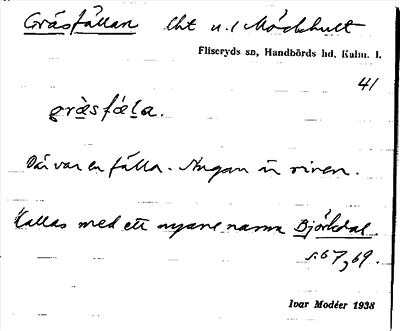 Gräsfällan lht u. / Möckhult
Fliseryds sn, Handbörds hd, Kalm. l.
41
gräsfäla.
Där var en fälla. Stugan är riven.
Kallas med ett nyare namn Björkdal.
s. 67, 69.
Ivar Modéer 1938